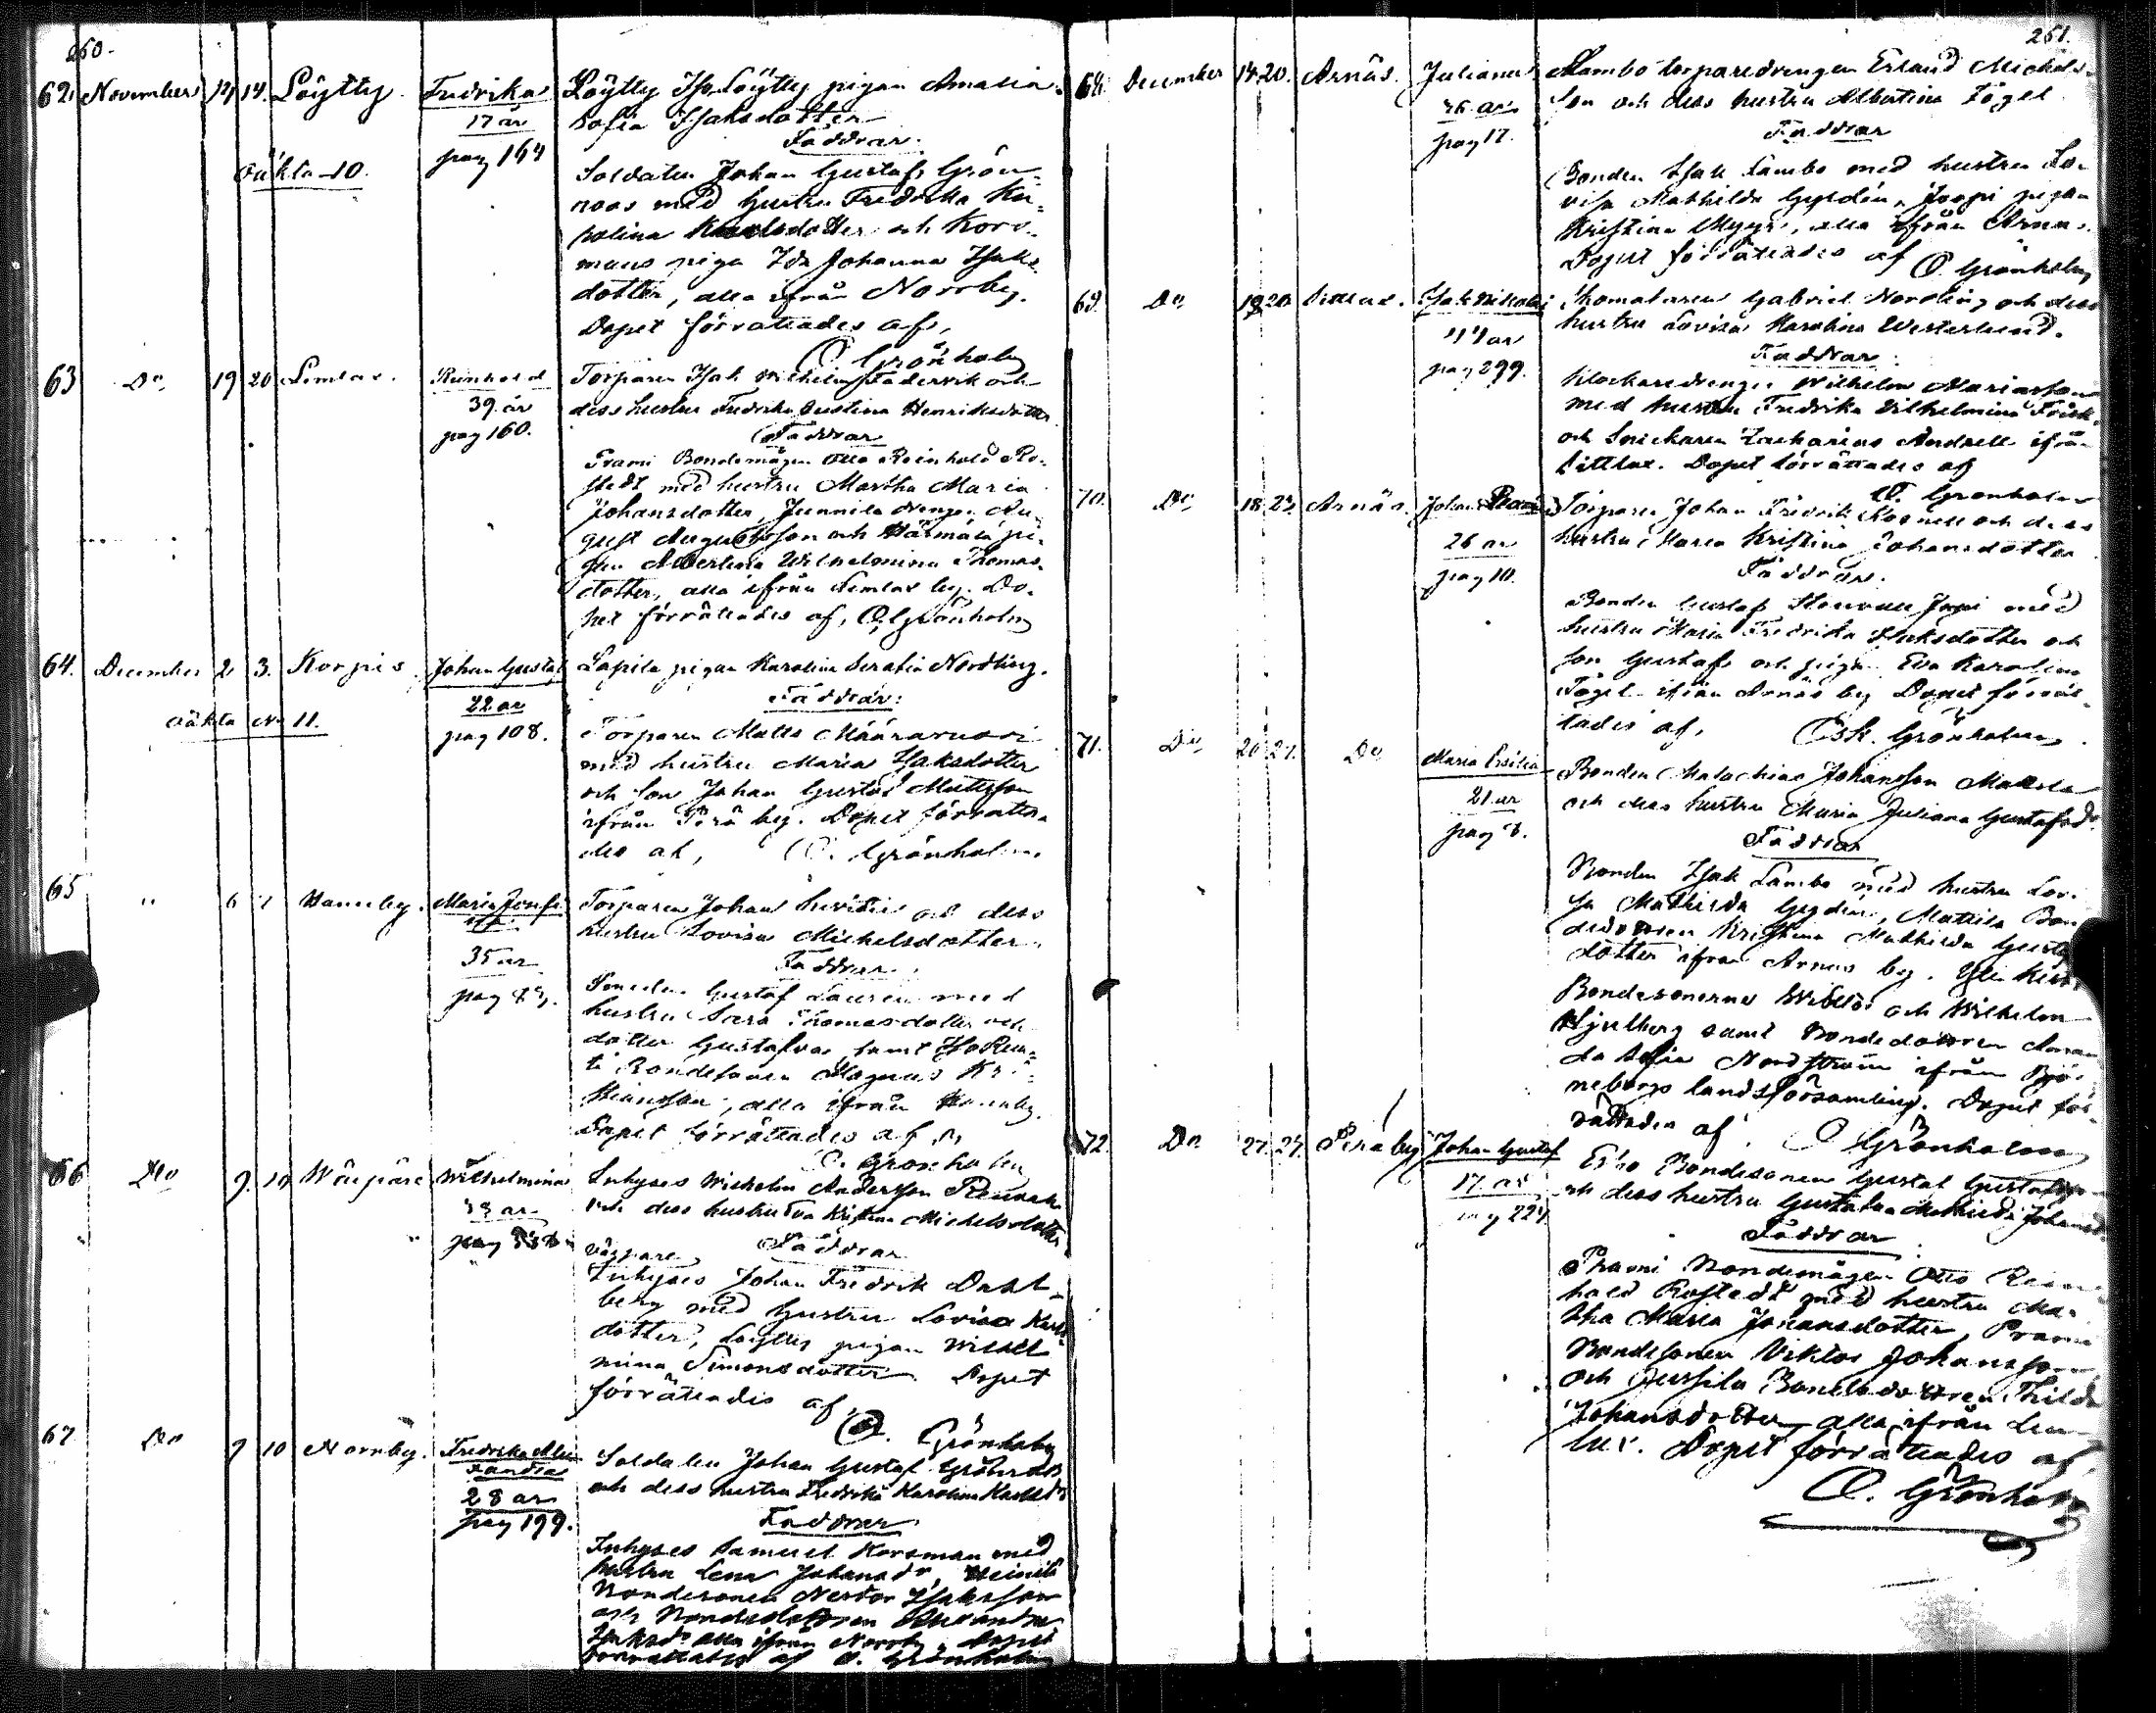 260.
62. November 14. Löytty Fredrika Löytty Löytty pigan Amalia
17 år Sofia Isaksdotter
Faddrar
oäkta 10. pag 164
Soldaten Johan Gustaf Grön-
roos med hustru Fredrika Ka-
rolina Karlsdotter och Kors-
mans piga Ida Johanna Isaks-
dotter, alla ifrån Norrby.
Dopet förrättades af,
O. Grönholm
63 Do 19 20 Lemlax. Reinhold Torparen Isak Wilhelm Federvik och
39 år dess hustru Fredrika Justina Henriksdotter
pag 160. Faddrar
Prami Bondemågen Otto Reinhold Ro-
stedt med hustru Martha Maria
Johansdotter, Junnila drengen Au-
gust Augustsson och Härmälä pi-
gan Albertina Wilhelmina Thomas-
dotter, alla ifrån Lemlax by. Do-
pet förrättades af, O. Grönholm
64. December 2 3. Korpis Johan Gustaf Lapila pigan Karolina Serafia Nordling.
22 år Faddrar:
oäkta No 11. pag 108. Torparen Matts
med hustru Maria Isaksdotter
och son Johan Gustaf Mattsson
ifrån Perä by. Dopet förrätta-
des af, O. Grönholm
65 " 6 7 Hanneby. Maria Josefi- Torparen Johan och dess
na hustru Lovisa Michelsdotter.
35 år Faddrar
pag Gustaf Lauren med
hustru Sara Thomasdotter och
dotter Gustafva samt
Bondesonen Magnus Kri-
stiansson, alla ifrån Hanneby.
Dopet förrättades af
O. Grönholm
66 Do 9. 10 Wilhelmina Inhyses Wilhelm Andersson
år och dess hustru Eva Kristina Michelsdotter
pag Faddrar
Inhyses Johan Fredrik Dahl-
berg med hustru Lovisa Karls-
dotter, Löytty pigan Wilhel-
mina Simonsdotter. Dopet
förrättades af
O. Grönholm
67 Do 9 10 Norrby. Fredrika Alex- Soldaten Johan Gustaf Grönroos
andra och dess hustru Fredrika Karolina Karlsdr
28 år Faddrar
pag 199.
Inhyses Samuel Korsman med
hustru Lena Johansdr, Heinilä
Bondesonen Nestor Isaksson
och Bondedottren Alexandra
Isaksdr alla ifrån Norrby. Dopet
förrättades af O. Grönholm
261.
68. December 14 20. Arnäs. Juliana Lambo torparedrengen Erland Michels-
36 år son och dess hustru Albertina Fogel
pag 17. Faddrar
Bonden Isak Lambo med hustru Lo-
visa Mathilda Gyldén, Joopi pigan
Kristina alla ifrån Arnäs.
Dopet förrättades af O. Grönholm
69. Do 19 20 Isak Nikolai Skomakaren Gabriel Nordling och dess
44 år hustru Lovisa Karolina Westerlund.
pag 299. Faddrar
Klockaredrengen Wilhelm Mariasson
med hustru Fredrika Wilhelmina
och Snickaren Zacharias Andsell ifrån
Dopet förrättades af
O. Grönholm
70. Do 18 27. Arnäs. Johan Torparen Johan Fredrik Rosnell och dess
26 år hustru Maria Kristina Johansdotter
pag 10. Faddrar.
Bonden Gustaf Stenvall Jopi med
hustru Maria Fredrika Isaksdotter och
son Gustaf, och pigan Eva Karolina
Fogel ifrån Arnäs by Dopet förrät-
tades af, Osk. Grönholm
71. Do 20 27. Do Maria Emilia Bonden Malachias Johansson Mattila
21 år och dess hustru Maria Juliana Gustafsdr.
pag 8. Faddrar
Bonden Isak Lambo med hustru Lovi-
sa Mathilda Gyldén, Mattila Bon-
dedottren Kristina Mathilda Gustafs-
dotter ifrån Arnäs by.
Bondesönerne Viktor och Wilhelm
Hjulberg samt Bondedottren Aman-
da Sofia Nordström ifrån Bjö-
neborgs landsförsamling. Dopet för-
rättades af O. Grönholm
72. Do 27. 27. Perä by. Johan Gustaf Esko Bondesonen Gustaf Gustafsson
17 år och dess hustru Gustafva Mathilda Johansdr
pag 224 Faddrar
Prami Bondemågen Otto Rein-
hold Rostedt med hustru Mar-
tha Maria Johansdotter, Prami
Bondesonen Viktor Johansson
och Jussila Bondedottren Hilda
Johansdotter, alla ifrån Lem-
lax. Dopet förrättades af
O. Grönholm